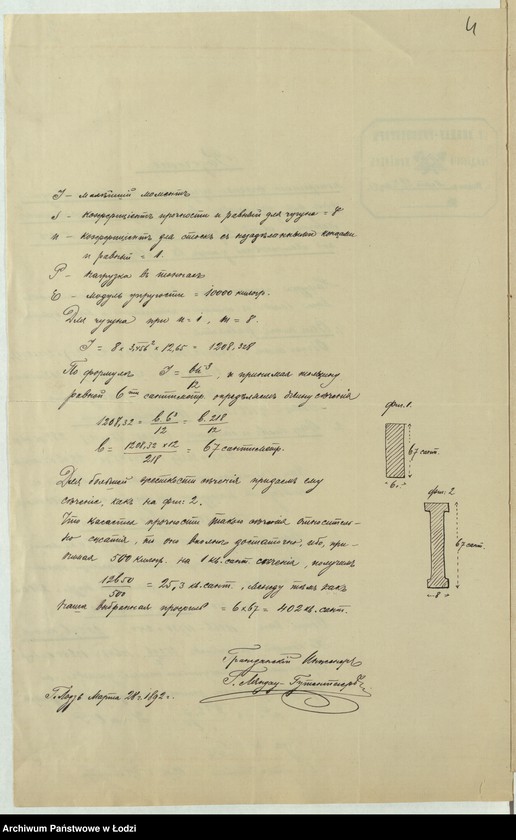 4
J – малѣйшій моментъ
s – коефиціентъ прочности и равный для чугуна = 8
n – коефиціентъ для стоекъ съ
и равный = 1.
P – нагрузка въ тоннахъ
E – модуль упругости = 10000 килогр.
Для чугуна при n = 1, m = 8.
J = 8 × 3,456² × 12,65 = 1208,328
По формулѣ J = bh³/12, и принимая толщину
равной 6 сантиметр. опредѣляемъ длину сѣченія
1208,32 = b.6³/12 = b.218/12
b = 1208,32 × 12/218 = 67 сантиметр.
Для большей сѣченія придаемъ ему
сѣченіе, какъ на фиг: 2.
Что касается прочности такого сѣченія относитель-
но сжатія, то оно вполнѣ достаточно, ибо, при-
нимая 500 килогр. на 1 кв. сант. сѣченія, получимъ
12650/500 = 25,3 кв. сант., между тѣмъ какъ
наша выбранная профиль = 6 × 67 = 402 кв. сант.
фиг. 1.
67 сант.
6.
фиг: 2
67 сант.
8
Гражданскій Инженеръ
Г. Ландау-Гутентегеръ
Г. Лодзь Марта 28 г. 1892 г.
Archiwum Państwowe w Łodzi